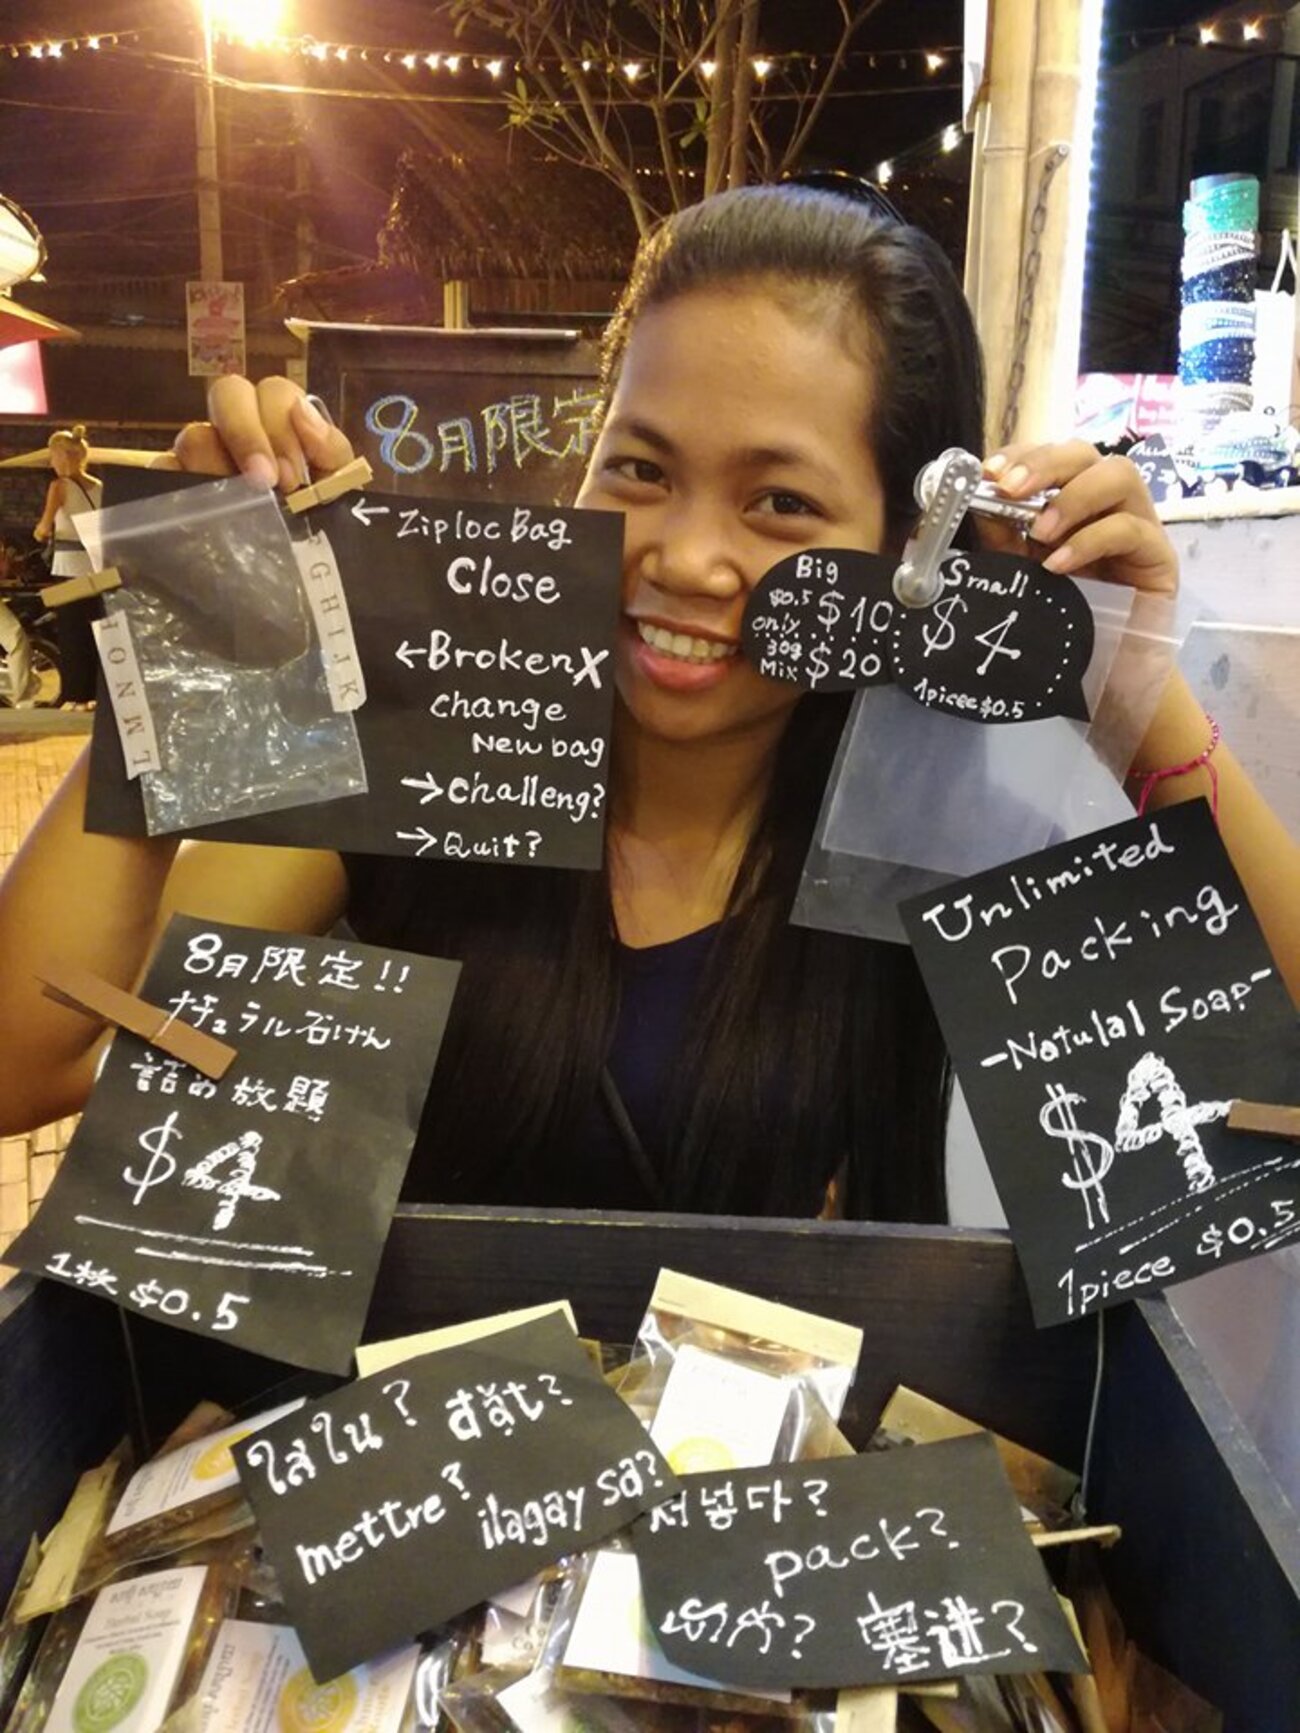 8月限定
← Ziploc Bag
Close
← Broken X
change
New bag
→ challeng?
→ Quit?
GHIJK
LMNO
Big
$0.5 $10
only
30g $20
Mix
Small...
$4
1piece $0.5
Unlimited
Packing
-Natulal Soap-
$4
1piece $0.5
8月限定!!
ナチュラル石けん
詰め放題
$4
1枚 $0.5
ใส่ใน? đặt?
mettre? ilagay sa?
넣다?
pack?
塞进?
Herbal Soap